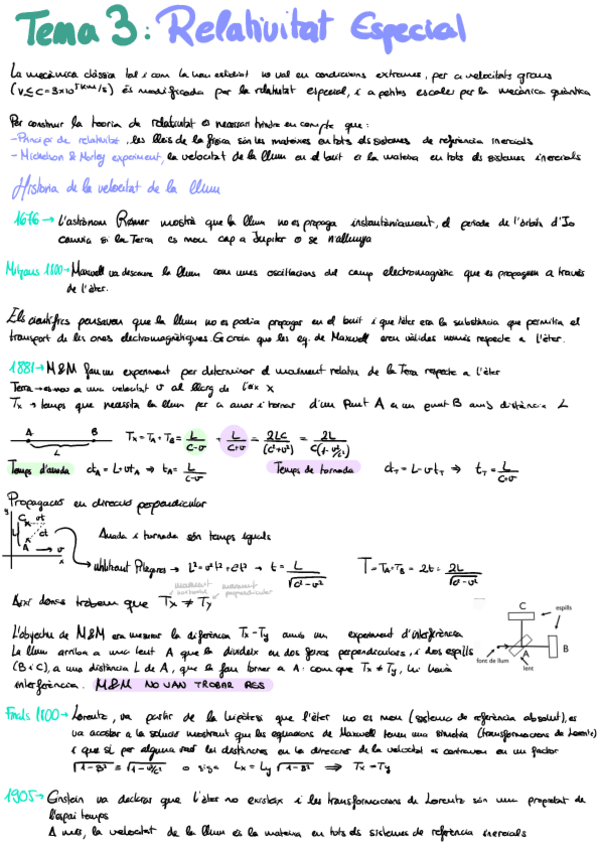 Tema 3: Relativitat Especial
La mecànica clàssica tal i com la hem estudiat no val en condicions extremes, per a velocitats grans
(v≤c=3×10⁵ km/s) és modificada per la relativitat especial, i a petites escales per la mecànica quàntica
Per construir la teoria de relativitat és necessari tindre en compte que:
- Principi de relativitat, les lleis de la física són les mateixes en tots els sistemes de referència inercials
- Michelson & Morley experiment, la velocitat de la llum en el buit és la mateixa en tots els sistemes inercials
Història de la velocitat de la llum
1676 → L'astrònom Rømer mostrà que la llum no es propaga instantàniament, el període de l'òrbita d'Io
canvia si la Terra es mou cap a Jupiter o se n'allunya
Mitjans 1800 → Maxwell va descriure la llum com unes oscil·lacions del camp electromagnètic que es propaguen a través
de l'èter.
Els científics pensaven que la llum no es podia propagar en el buit i que l'èter era la substància que permitia el
transport de les ones electromagnètiques. Es creia que les eq. de Maxwell eren vàlides només respecte a l'èter.
1881 → M&M fan un experiment per determinar el moviment relatiu de la Terra respecte a l'èter
Terra → es mou a una velocitat v al llarg de l'eix x
Tx → temps que necessita la llum per a anar i tornar d'un punt A a un punt B amb distància L
A B L Tx = TA + TB = L/(c-v) + L/(c+v) = 2LC/(c²+v²) = 2L/(c(1-v²/c²))
Temps d'anada ctA = L+vtA → tA = L/(c-v) Temps de tornada ctT = L-vtT → tT = L/(c+v)
Propagació en direcció perpendicular
y C vt L ct A → v x
Anada i tornada són temps iguals
utilitzant Pitàgores → L² = v²t² + c²t² → t = L/√(c²-v²) T = TA + TB = 2t = 2L/√(c²-v²)
moviment horitzontal moviment perpendicular
Així doncs trobem que Tx ≠ Ty
L'objectiu de M&M era mesurar la diferència Tx-Ty amb un experiment d'interferència
La llum arriba a una lent A que la divideix en dos feixos perpendiculars, i dos espills
(B i C), a una distància L de A, que la fan tornar a A: com que Tx ≠ Ty, hi hauria
interferència. M&M NO VAN TROBAR RES
C
espills
B
A
font de llum
lent
Finals 1800 → Lorentz, va partir de la hipòtesi que l'èter no es mou (sistema de referència absolut), es
va acostar a la solució mostrant que les equacions de Maxwell tenen una simetria (transformacions de Lorentz)
i que si per alguna raó les distàncies en la direcció de la velocitat es contrauen en un factor
√(1-β²) = √(1-v²/c²) o siga Lx = Ly √(1-β²) ⇒ Tx = Ty
1905 → Einstein va declarar que l'èter no existeix i les transformacions de Lorentz són una propietat de
l'espai temps
A més, la velocitat de la llum és la mateixa en tots els sistemes de referència inercials